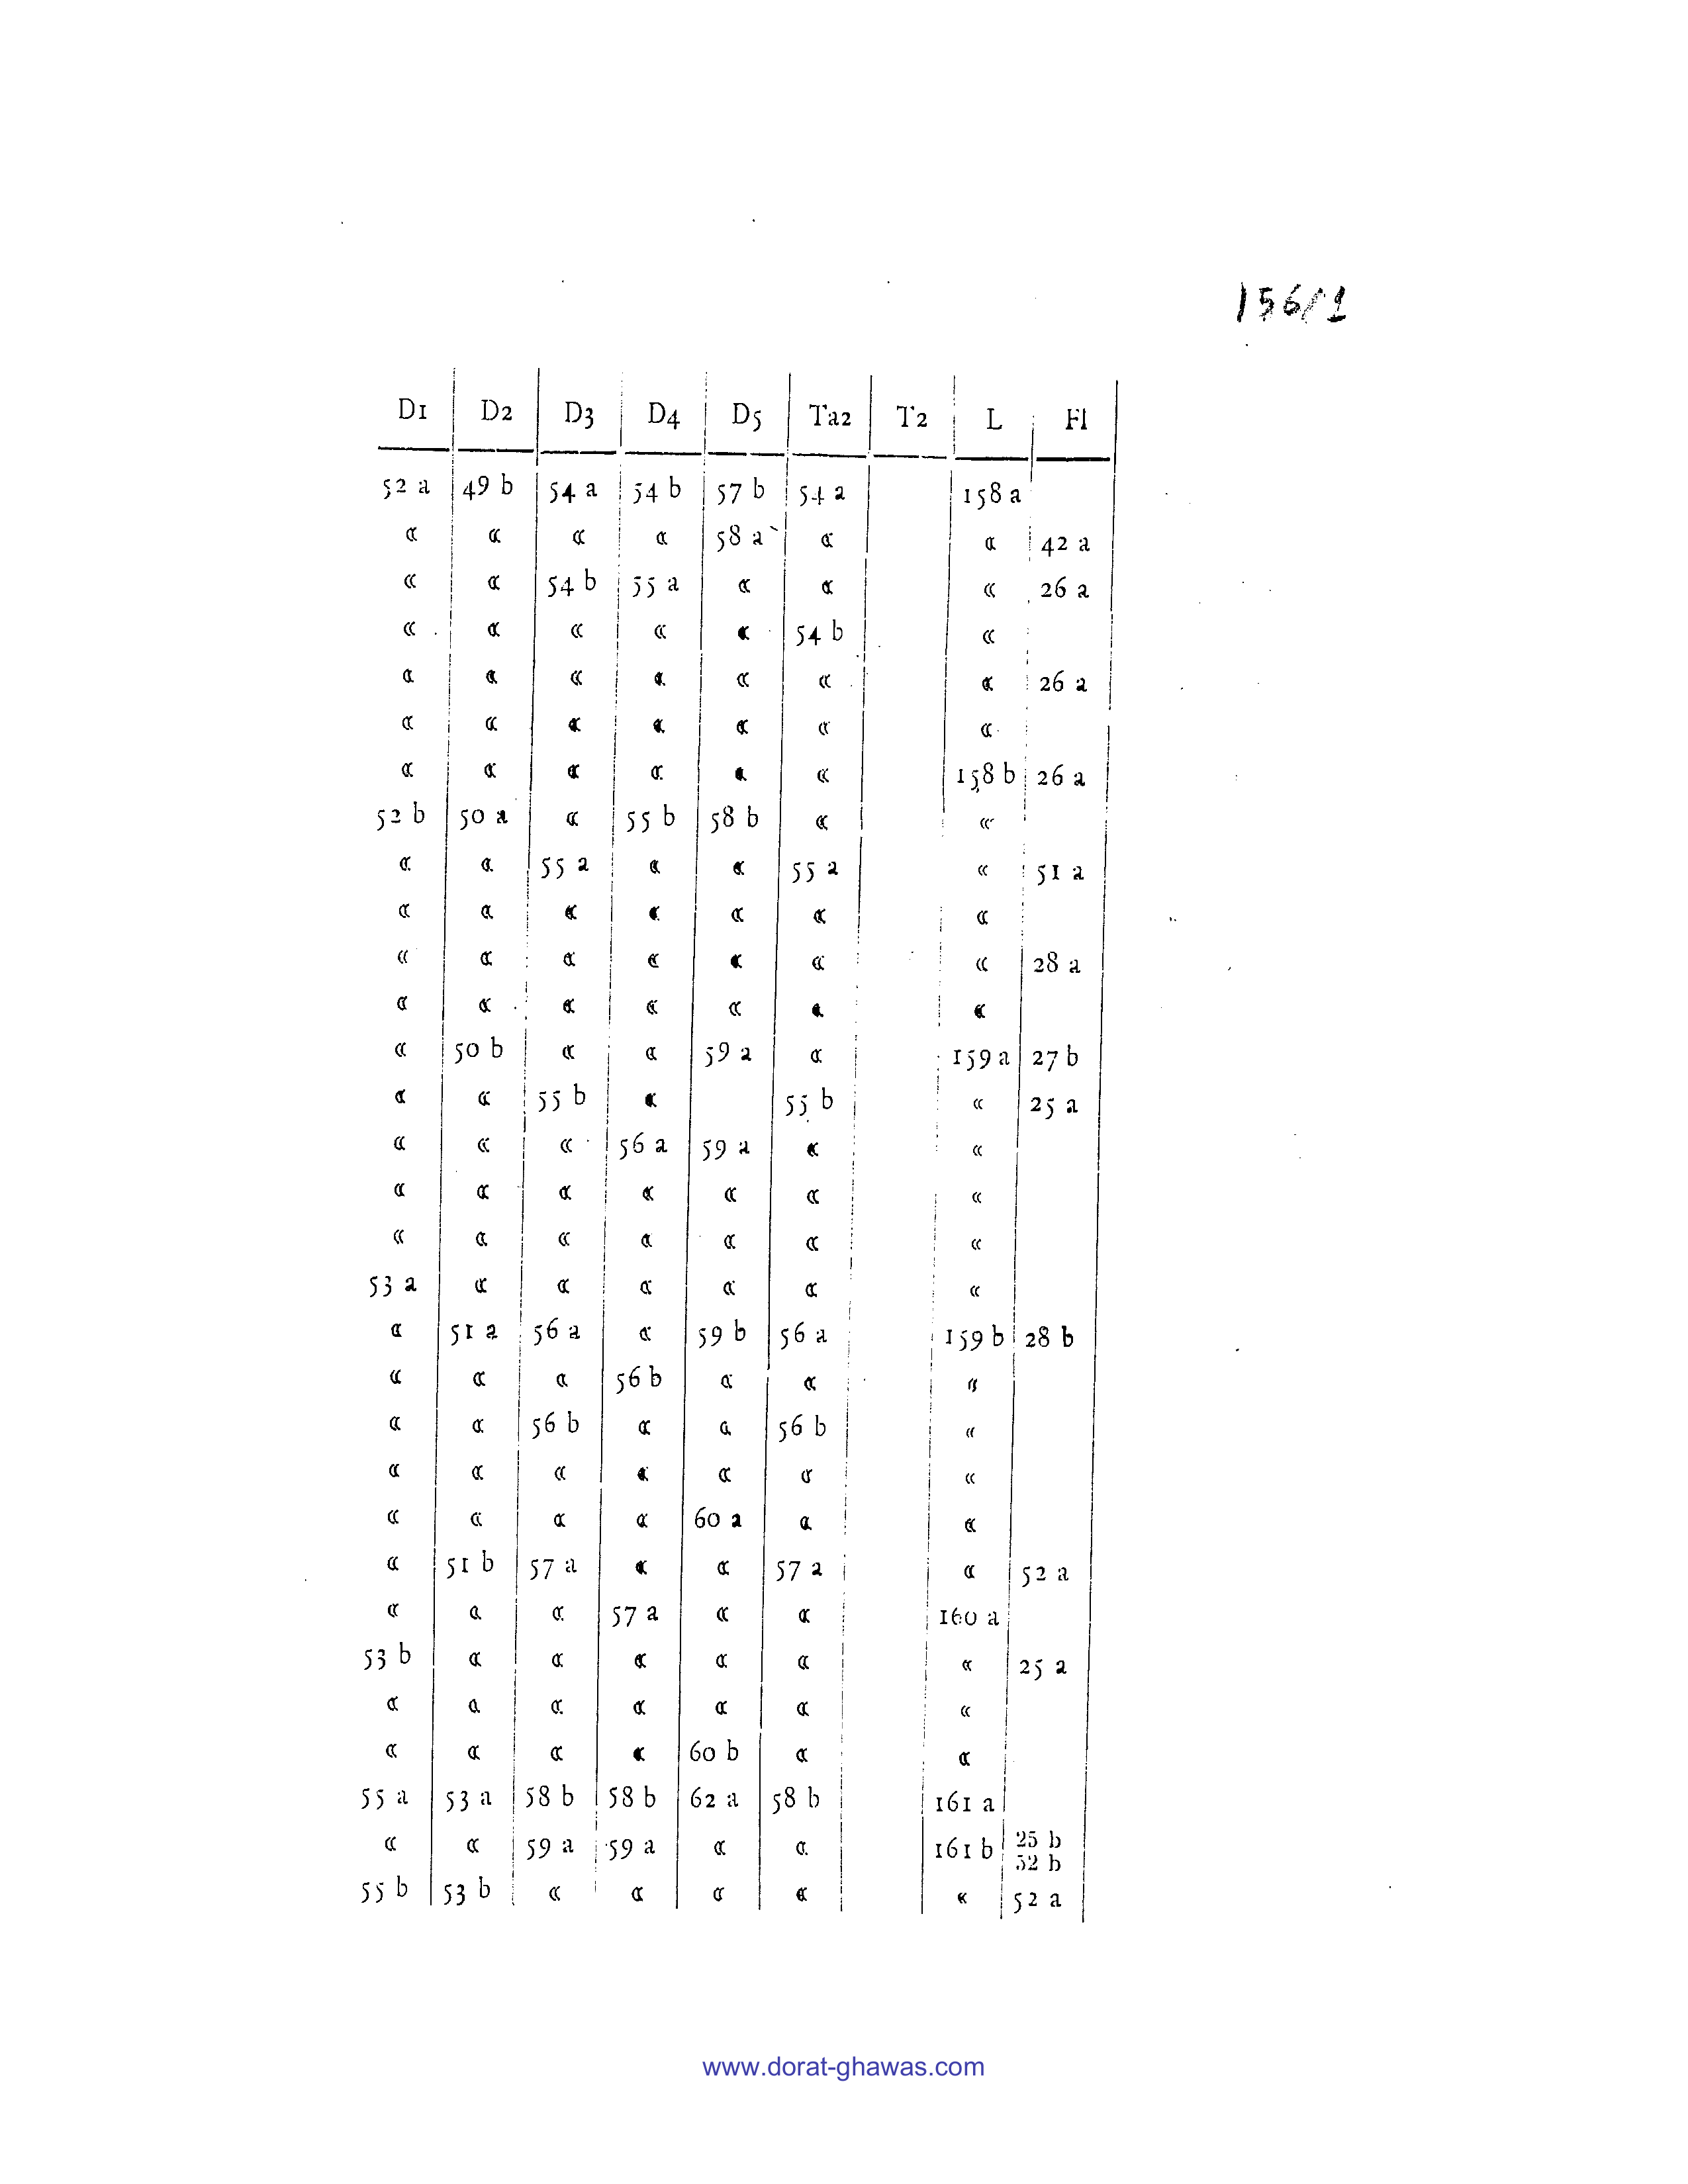 156/1
D1 D2 D3 D4 D5 Ta2 T2 L Fl
52 a 49 b 54 a 54 b 57 b 54 a 158 a
« « « « 58 a « « 42 a
« « 54 b 55 a « « « 26 a
« « « « « 54 b «
« « « « « « « 26 a
« « « « « « «
« « « « « « 158 b 26 a
52 b 50 a « 55 b 58 b « «
« « 55 a « « 55 a « 51 a
« « « « « « «
« « « « « « « 28 a
« « « « « « «
« 50 b « « 59 a « 159 a 27 b
« « 55 b « 55 b « 25 a
« « « 56 a 59 a « «
« « « « « « «
« « « « « « «
53 a « « « « « «
« 51 a 56 a « 59 b 56 a 159 b 28 b
« « « 56 b « « «
« « 56 b « « 56 b «
« « « « « « «
« « « « 60 a « «
« 51 b 57 a « « 57 a « 52 a
« « « 57 a « « 160 a
53 b « « « « « « 25 a
« « « « « « «
« « « « 60 b « «
55 a 53 a 58 b 58 b 62 a 58 b 161 a
« « 59 a 59 a « « 161 b 25 b
52 b
55 b 53 b « « « « « 52 a
www.dorat-ghawas.com